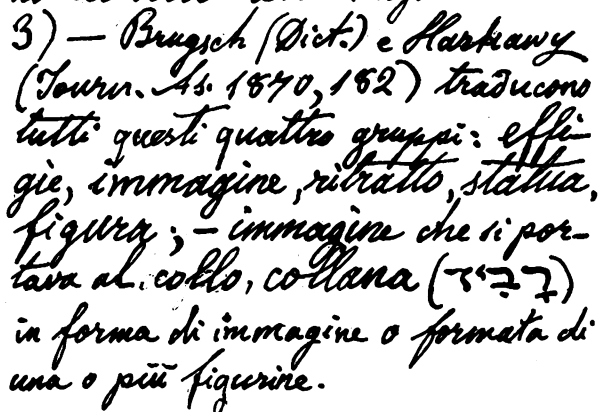 3) — Brugsch (Dict.) e Harkawy
(Journ. As. 1870, 182) traducono
tutti questi quattro gruppi: effi-
gie, immagine, ritratto, statua,
figura; – immagine che si por-
tava al collo, collana (רביד)
in forma di immagine o formata di
una o più figurine.